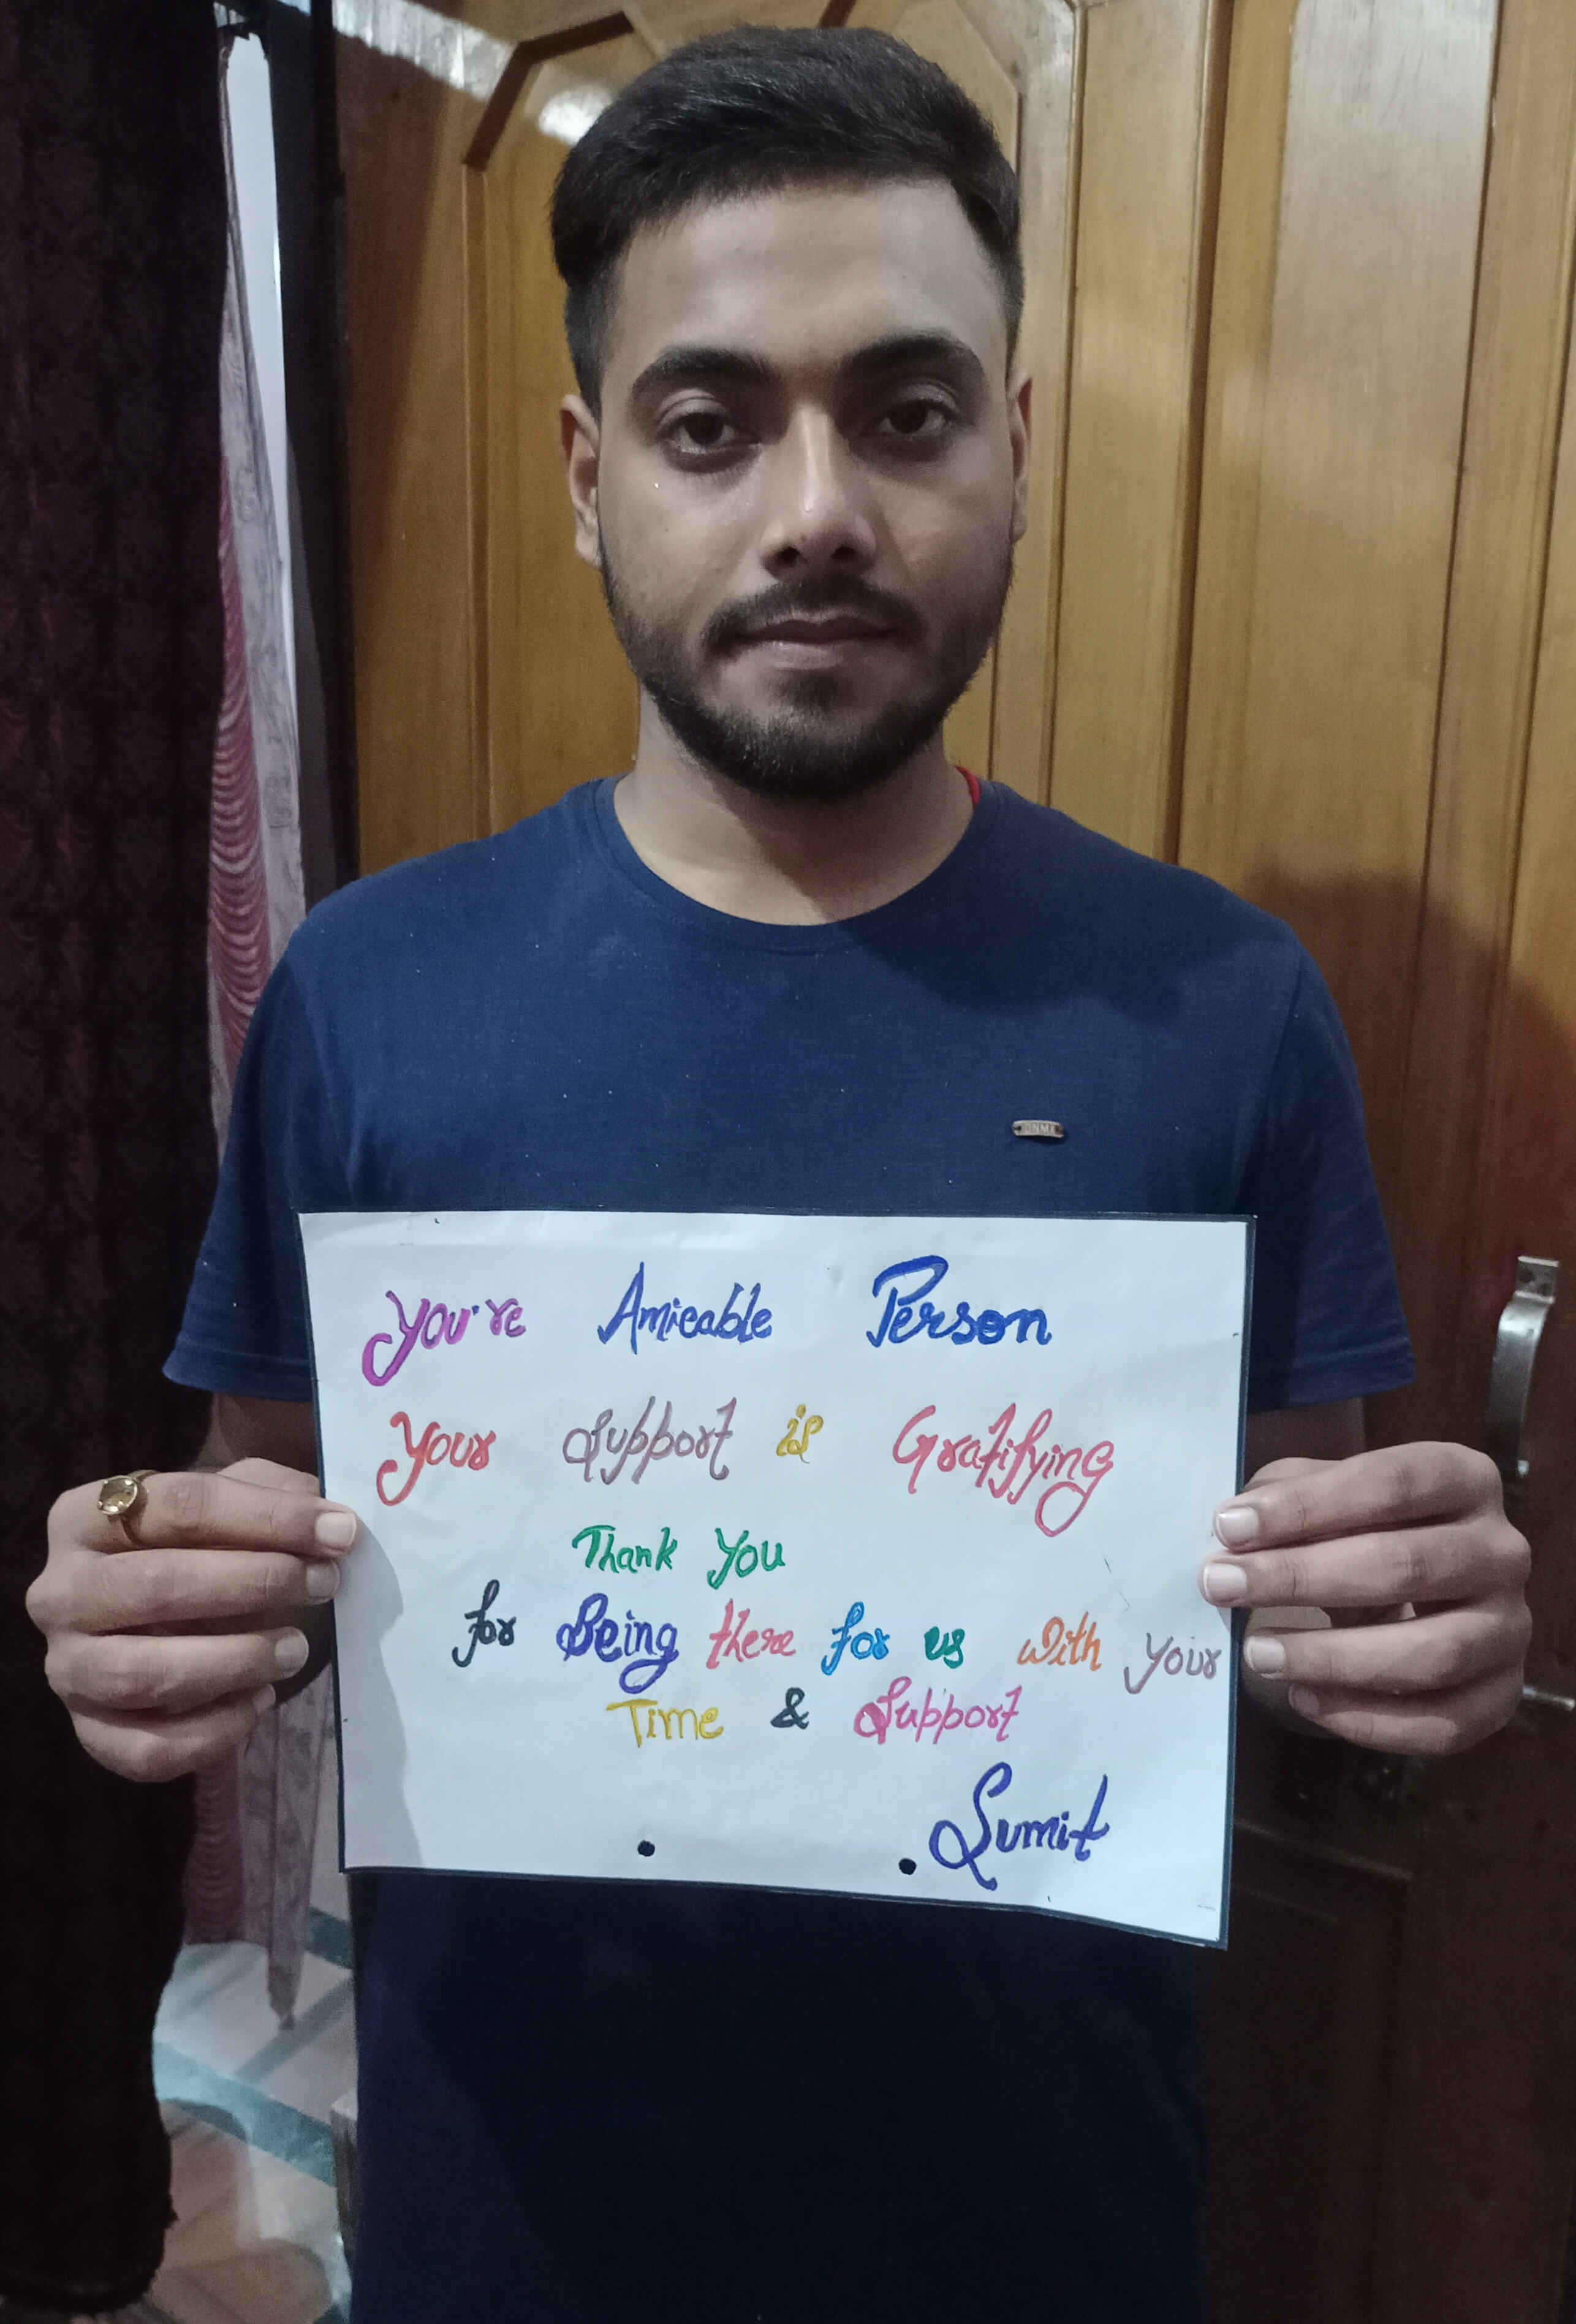 You're Amicable Person
Your Support is Gratifying
Thank You
for Being there for us with your
Time & Support
Sumit